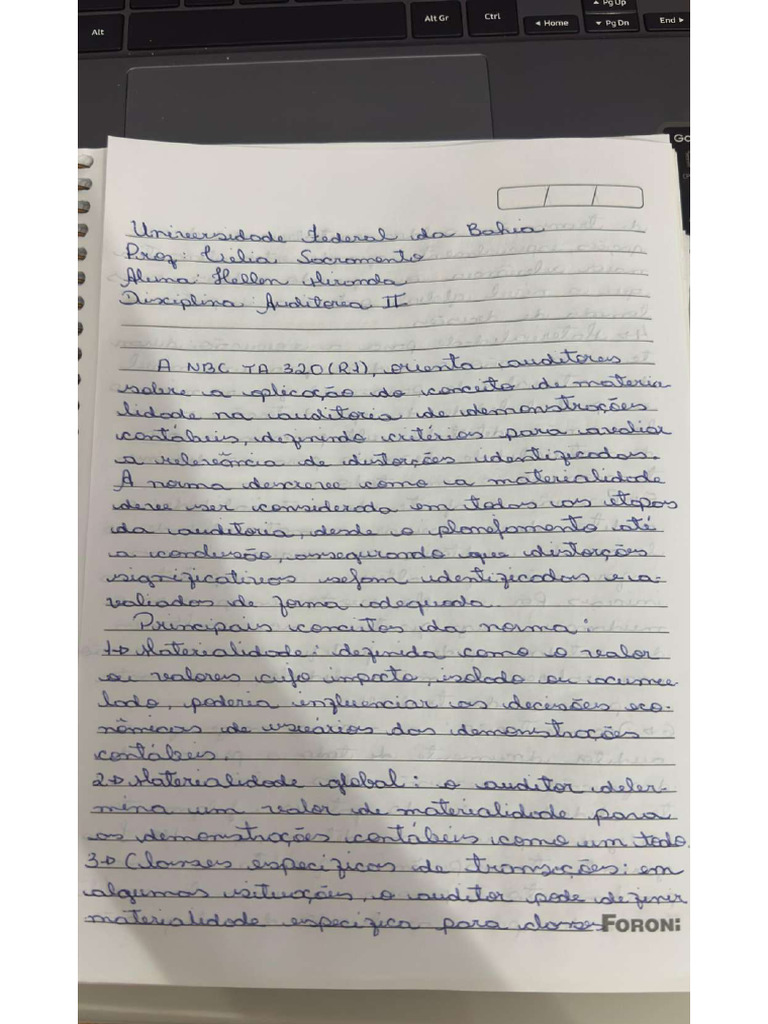 Alt
Alt Gr
Ctrl
◄ Home
▲ Pg Up
▼ Pg Dn
End ►
Universidade Federal da Bahia
Prof: Célia Sacramento
Aluna: Hellen Miranda
Disciplina: Auditoria II
A NBC TA 320 (R1), orienta auditores
sobre a aplicação do conceito de materia-
lidade na auditoria de demonstrações
contábeis, definindo critérios para avaliar
a relevância de distorções identificadas.
A norma descreve como a materialidade
deve ser considerada em todas as etapas
da auditoria, desde o planejamento até
a conclusão, assegurando que distorções
significativas sejam identificadas e a-
valiadas de forma adequada.
Principais conceitos da norma:
1→ Materialidade: definida como o valor
ou valores cujo impacto, isolado ou acumu-
lado, poderia influenciar as decisões eco-
nômicas de usuários das demonstrações
contábeis.
2→ Materialidade global: o auditor deter-
mina um valor de materialidade para
as demonstrações contábeis como um todo.
3→ Classes específicas de transações: em
algumas situações, o auditor pode definir
materialidade específica para classes
FORONI